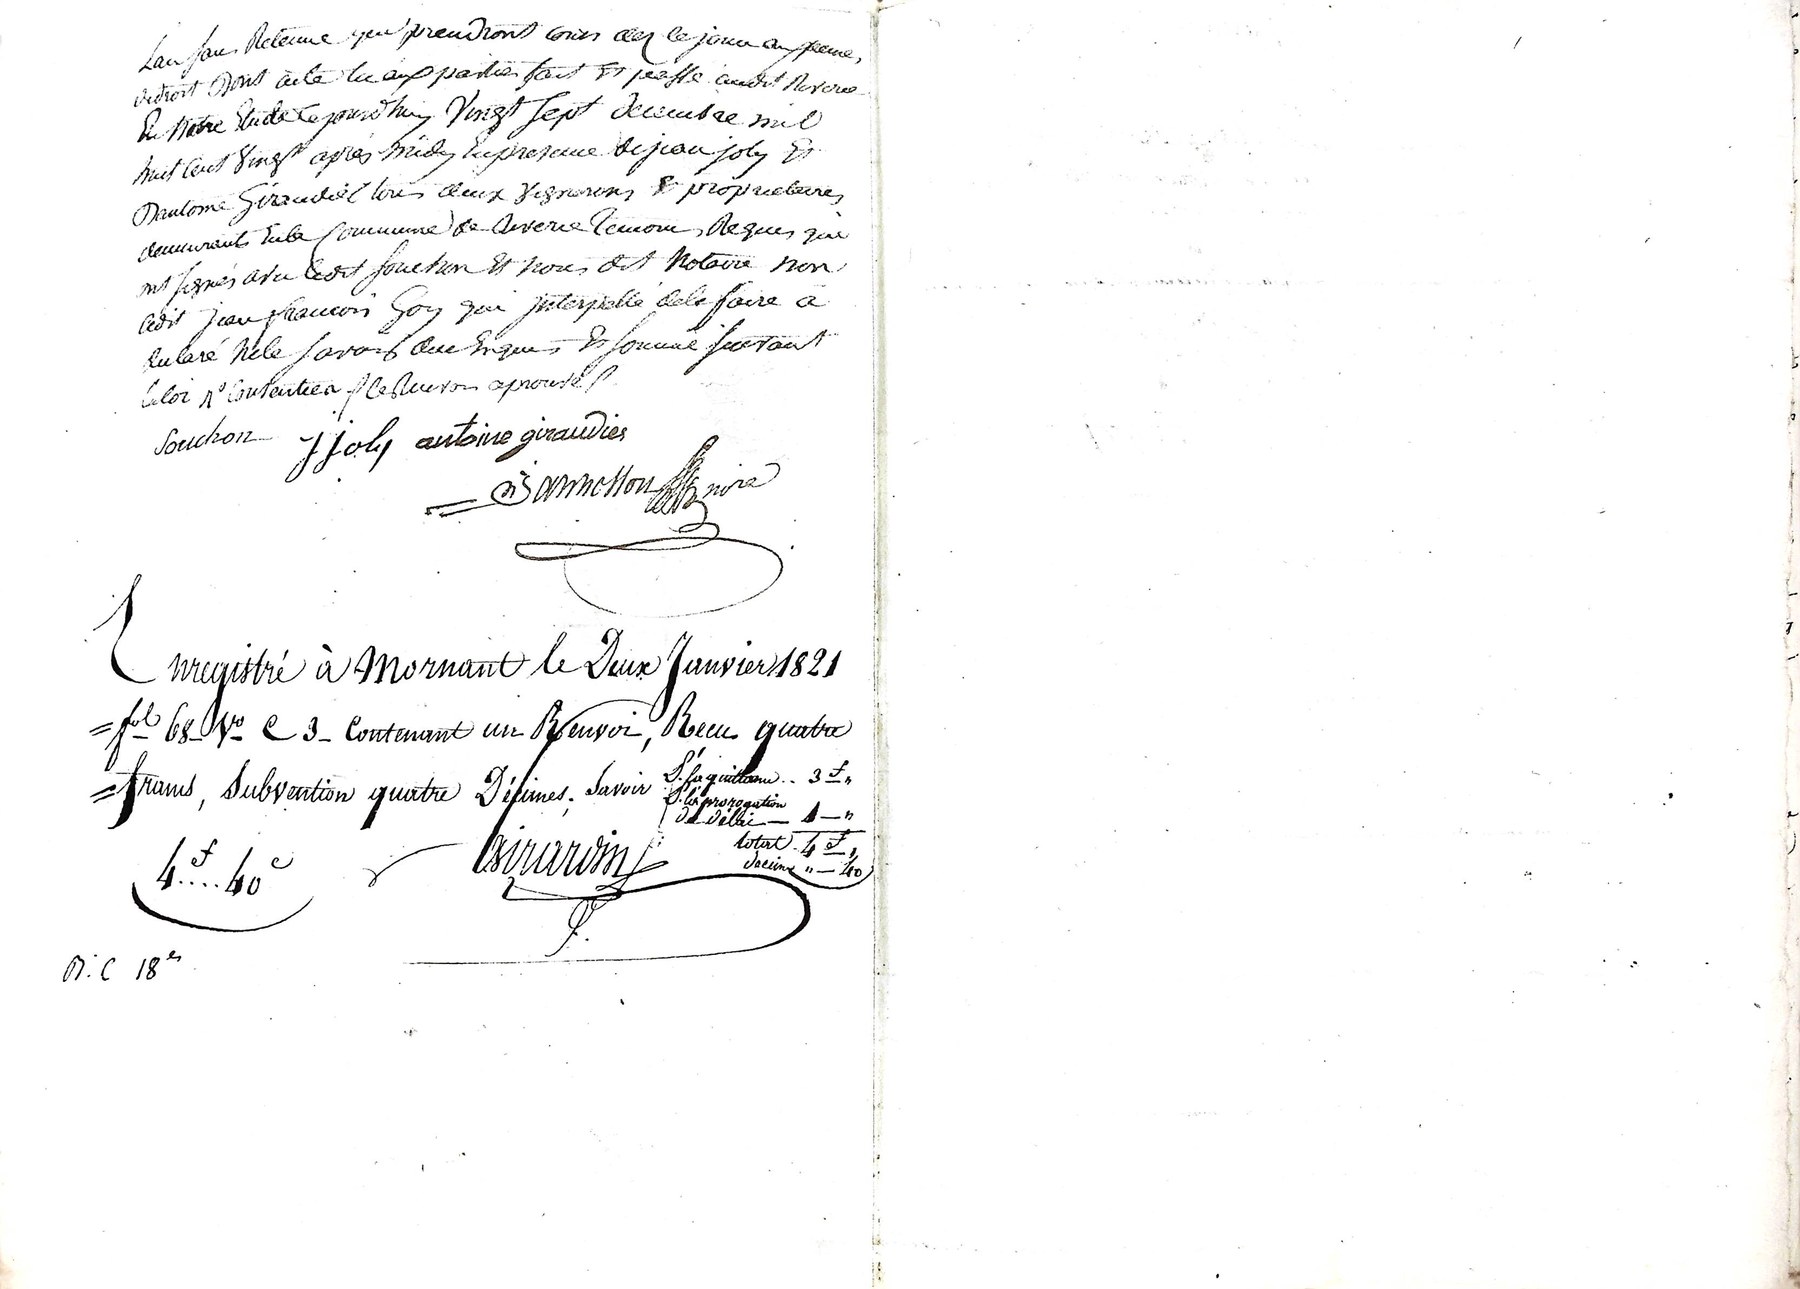 Lan sans Retenue qui prendront cours dez le jour
dudroit Dont acte lu aux parties fait Et passé audit Riverie
En Notre Etude Cejourdhuy Vingt Sept decembre mil
huit Cent Vingt après Midy En presence de jean joly Et
Dantoine Giraudiér tous deux Vignerons & proprietaires
demeurants En la Commune de Riverie Temoins Requis qui
ont signés avec ledit Souchon Et nous dit Notaire non
ledit jean francois Goy qui Interpellé de le faire a
declaré Ne le savoir due Enquis Et sommé suivant
la loi Contentien le Renvoi aprouvé
Souchon j joly antoine giraudier
nore
Enregistré à Mornant le Deux Janvier 1821
fol 68 Vo C 3 Contenant un Renvoi, Recu quatre
francs, Subvention quatre Décimes, Savoir
P. la quittance .. 3 f "
P. la prorogation
de délai — 1 — "
total . 4 f "
decime " — 40
4 f .... 40 c
Girardin
R. C 18 es